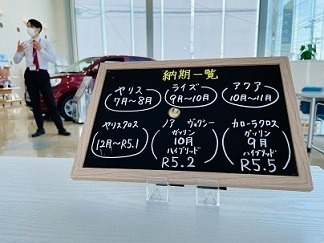 納期一覧
ヤリス
7月～8月
ライズ
9月～10月
アクア
10月～11月
ヤリスクロス
12月～R5.1
ノア ヴォクシー
ガソリン
10月
ハイブリッド
R5.2
カローラクロス
ガソリン
9月
ハイブリッド
R5.5